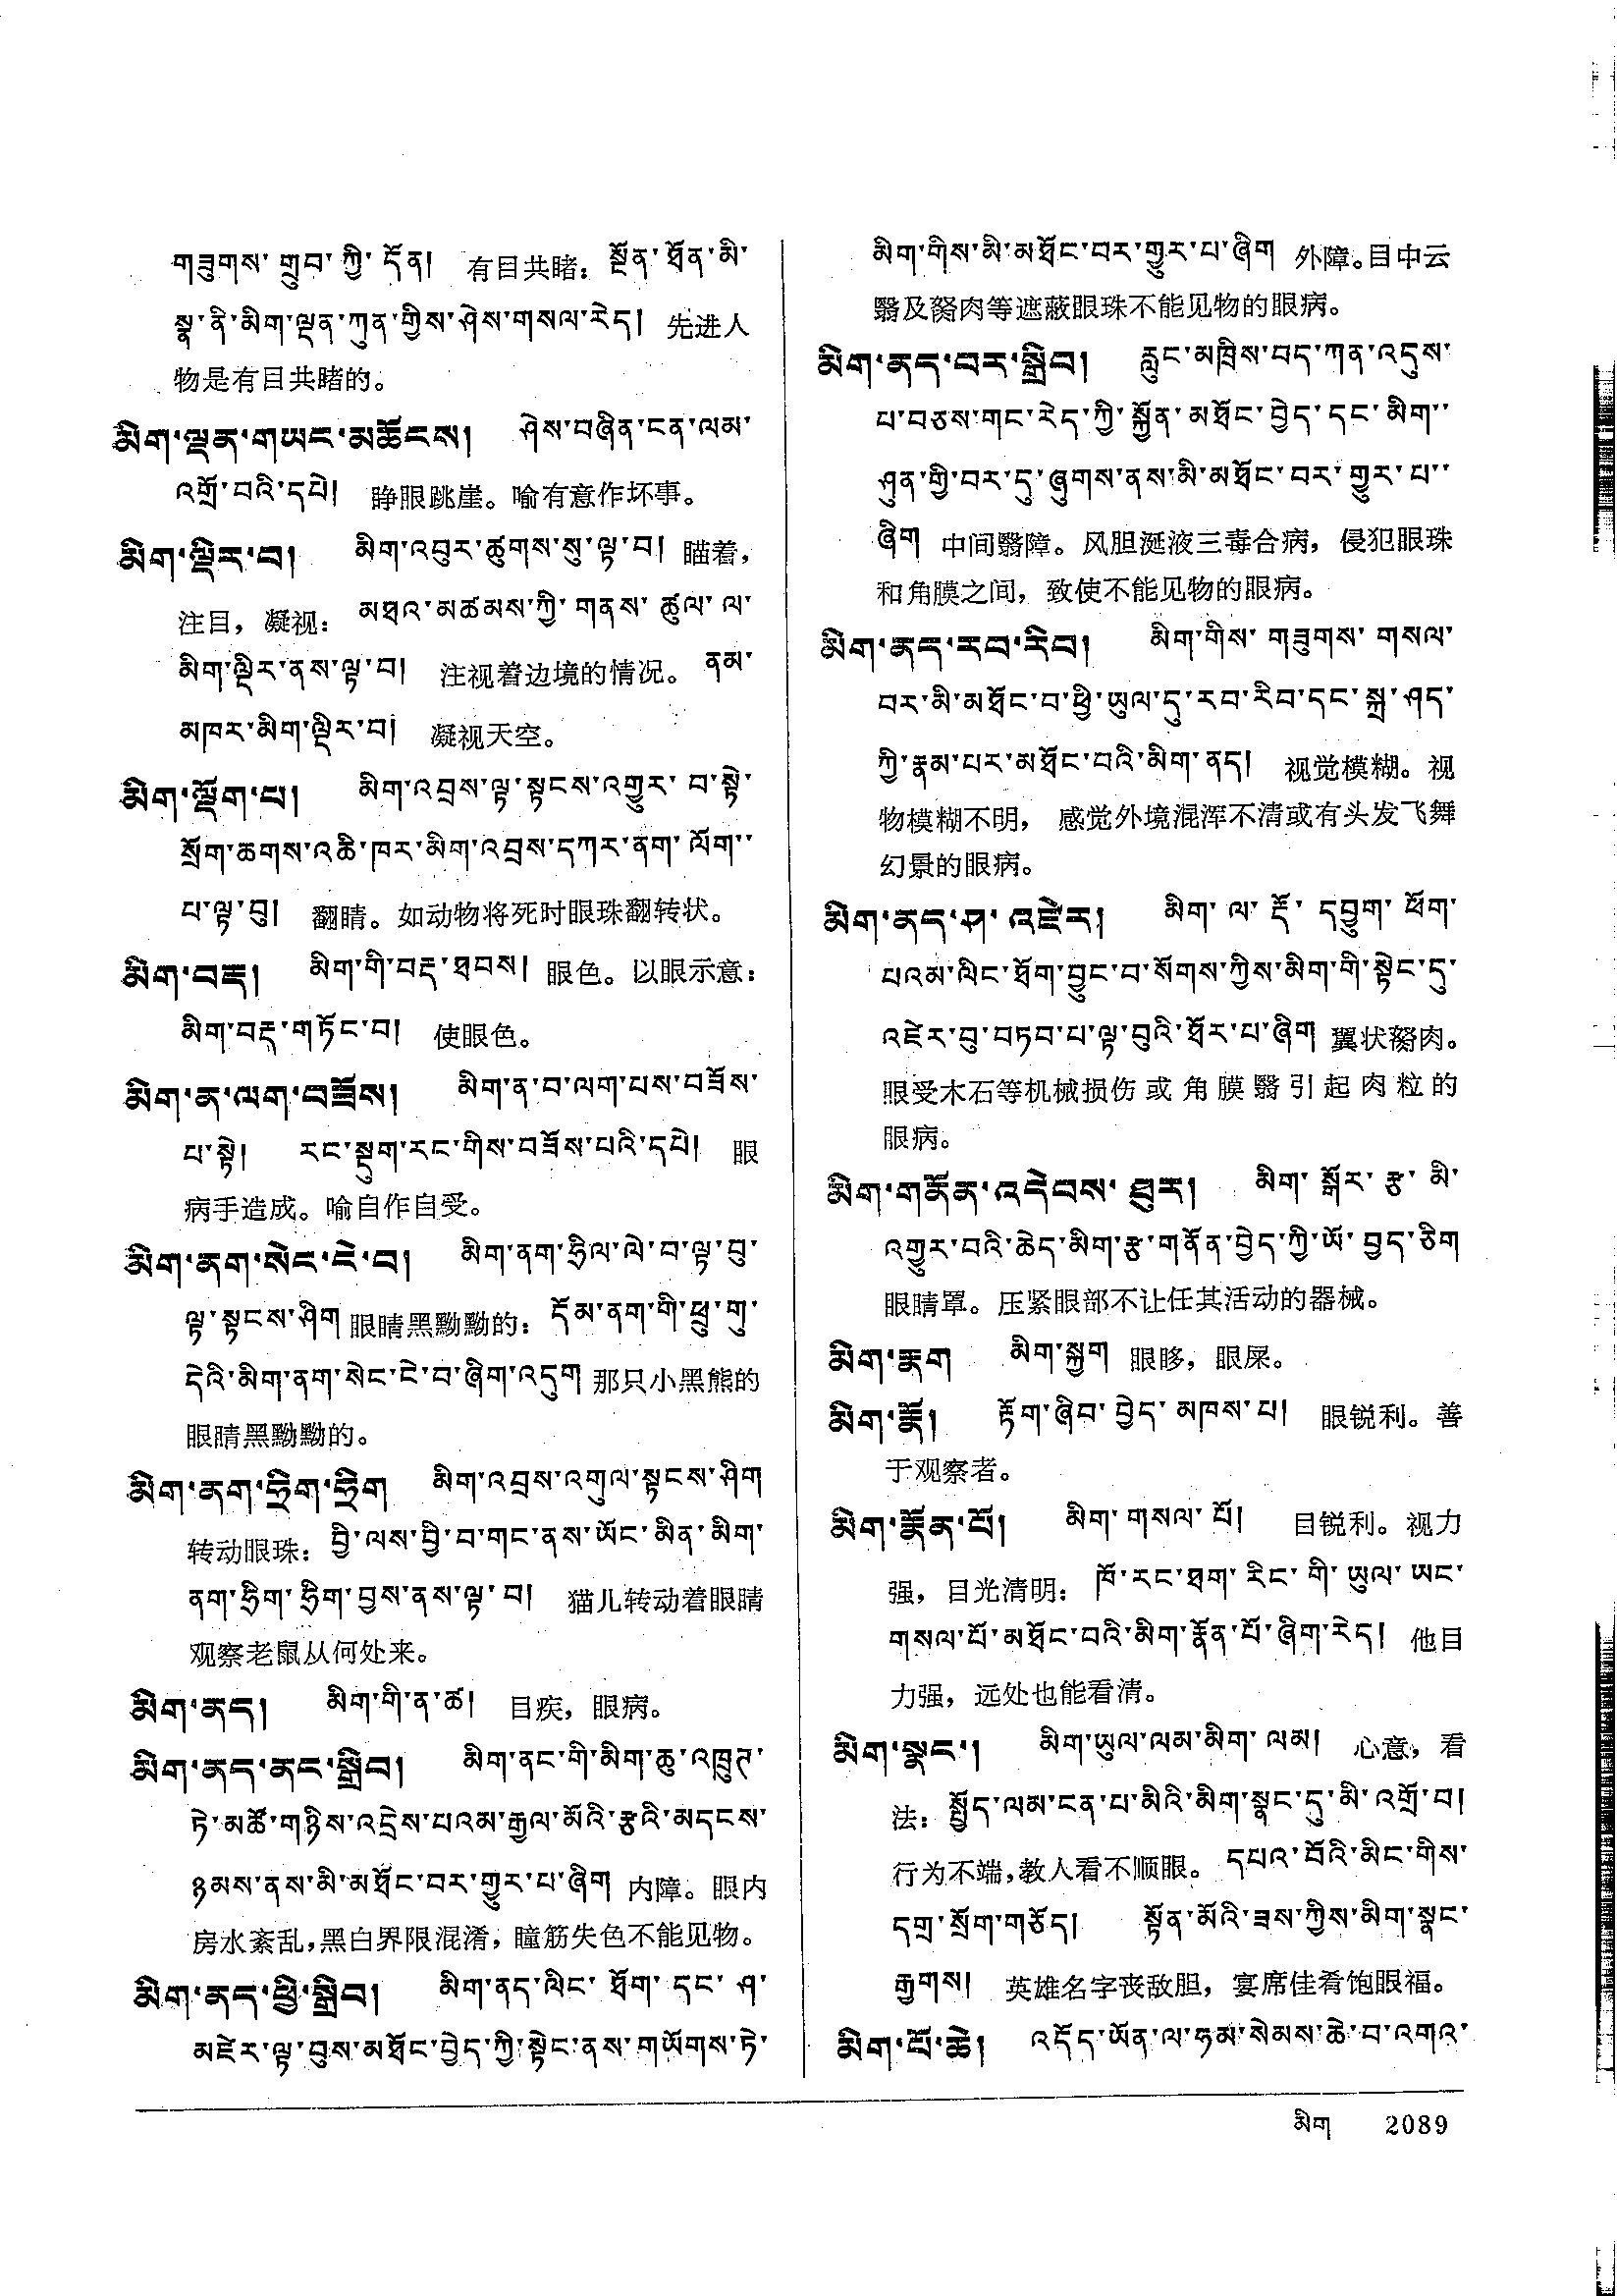 གཟུགས་ གྲུབ་ ཀྱི་ དོན། 有目共睹：སྔོན་ཐོན་མི་
སྣ་ནི་མིག་ལྡན་ཀུན་གྱིས་ཤེས་གསལ་རེད། 先进人
物是有目共睹的。
མིག་ལྡན་གཡང་མཆོངས། ཤེས་བཞིན་ངན་ལམ་
འགྲོ་བའི་དཔེ། 睁眼跳崖。喻有意作坏事。
མིག་ལྡིར་བ། མིག་འབུར་ཚུགས་སུ་ལྟ་བ། 瞄着，
注目，凝视：མཐའ་མཚམས་ཀྱི་ གནས་ ཚུལ་ ལ་
མིག་ལྡིར་ནས་ལྟ་བ། 注视着边境的情况。ནམ་
མཁར་མིག་ལྡིར་བ། 凝视天空。
མིག་ལྡོག་པ། མིག་འབྲས་ལྟ་སྟངས་འགྱུར་ བ་སྟེ་
སྲོག་ཆགས་འཆི་ཁར་མིག་འབྲས་དཀར་ནག་ ལོག་་
པ་ལྟ་བུ། 翻睛。如动物将死时眼珠翻转状。
མིག་བརྡ། མིག་གི་བརྡ་ཐབས། 眼色。以眼示意：
མིག་བརྡ་གཏོང་བ། 使眼色。
མིག་ན་ལག་བཟོས། མིག་ན་བ་ལག་པས་བཟོས་
པ་སྟེ། རང་སྡུག་རང་གིས་བཟོས་པའི་དཔེ། 眼
病手造成。喻自作自受。
མིག་ནག་སེང་ངེ་བ། མིག་ནག་ཧྲིལ་ལེ་བ་ལྟ་བུ་
ལྟ་སྟངས་ཤིག 眼睛黑黝黝的：དོམ་ནག་གི་ཕྲུ་གུ་
དེའི་མིག་ནག་སེང་ངེ་བ་ཞིག་འདུག 那只小黑熊的
眼睛黑黝黝的。
མིག་ནག་ཧྲིག་ཧྲིག མིག་འབྲས་འགུལ་སྟངས་ཤིག
转动眼珠：བྱི་ལས་བྱི་བ་གང་ནས་ཡོང་མིན་མིག་
ནག་ཧྲིག་ཧྲིག་བྱས་ནས་ལྟ་བ། 猫儿转动着眼睛
观察老鼠从何处来。
མིག་ནད། མིག་གི་ན་ཚ། 目疾，眼病。
མིག་ནད་ནང་སྒྲིབ། མིག་ནང་གི་མིག་ཆུ་འཁྲུག་
ཏེ་མཚོ་གཉིས་འདྲེས་པའམ་རྒྱལ་མོའི་རྩའི་མདངས་
ཉམས་ནས་མི་མཐོང་བར་གྱུར་པ་ཞིག 内障。眼内
房水紊乱，黑白界限混淆，瞳筋失色不能见物。
མིག་ནད་ཕྱི་སྒྲིབ། མིག་ནད་ལིང་ ཐོག་ དང་ ཤ་
མཛེར་ལྟ་བུས་མཐོང་བྱེད་ཀྱི་སྟེང་ནས་གཡོགས་ཏེ་
མིག་གིས་མི་མཐོང་བར་གྱུར་པ་ཞིག 外障。目中云
翳及胬肉等遮蔽眼珠不能见物的眼病。
མིག་ནད་བར་སྒྲིབ། རླུང་མཁྲིས་བད་ཀན་འདུས་
པ་བཅས་གང་རེད་ཀྱི་སྐྱོན་མཐོང་བྱེད་དང་མིག་་
ཤུན་གྱི་བར་དུ་ཞུགས་ནས་མི་མཐོང་བར་གྱུར་པ་་
ཞིག 中间翳障。风胆涎液三毒合病，侵犯眼珠
和角膜之间，致使不能见物的眼病。
མིག་ནད་རབ་རིབ། མིག་གིས་ གཟུགས་ གསལ་
བར་མི་མཐོང་བ་ཕྱི་ཡུལ་དུ་རབ་རིབ་དང་སྐྲ་ཤད་
ཀྱི་རྣམ་པར་མཐོང་བའི་མིག་ནད། 视觉模糊。视
物模糊不明，感觉外境混浑不清或有头发飞舞
幻景的眼病。
མིག་ནད་ཤ་འཛེར། མིག་ ལ་ རྡོ་ དབྱུག་ ཕོག་
པའམ་ལིང་ཐོག་བྱུང་བ་སོགས་ཀྱིས་མིག་གི་སྟེང་དུ་
འཛེར་བུ་བཏབ་པ་ལྟ་བུའི་ཐོར་པ་ཞིག 翼状胬肉。
眼受木石等机械损伤或角膜翳引起肉粒的
眼病。
མིག་གནོན་འདེབས་ཐུར། མིག་ སྒོར་ རྩ་ མི་
འགྱུར་བའི་ཆེད་མིག་རྩ་གནོན་བྱེད་ཀྱི་ཡོ་བྱད་ཅིག
眼睛罩。压紧眼部不让任其活动的器械。
མིག་རྣག མིག་སྐྱག 眼眵，眼屎。
མིག་རྣོ། རྟོག་ཞིབ་ བྱེད་ མཁས་པ། 眼锐利。善
于观察者。
མིག་རྣོན་པོ། མིག་ གསལ་ པོ། 目锐利。视力
强，目光清明：ཁོ་རང་ཐག་ རིང་ གི་ ཡུལ་ ཡང་
གསལ་པོ་མཐོང་བའི་མིག་རྣོན་པོ་ཞིག་རེད། 他目
力强，远处也能看清。
མིག་སྣང་། མིག་ཡུལ་ལམ་མིག་ ལམ། 心意，看
法：སྤྱོད་ལམ་ངན་པ་མིའི་མིག་སྣང་དུ་མི་འགྲོ་བ།
行为不端，教人看不顺眼。དཔའ་བོའི་མིང་གིས་
དགྲ་སྲོག་གཅོད། སྟོན་མོའི་ཟས་ཀྱིས་མིག་སྣང་
རྒྱགས། 英雄名字丧敌胆，宴席佳肴饱眼福。
མིག་པོ་ཆེ། འདོད་ཡོན་ལ་ཧམ་སེམས་ཆེ་བ་འགའ་
མིག 2089